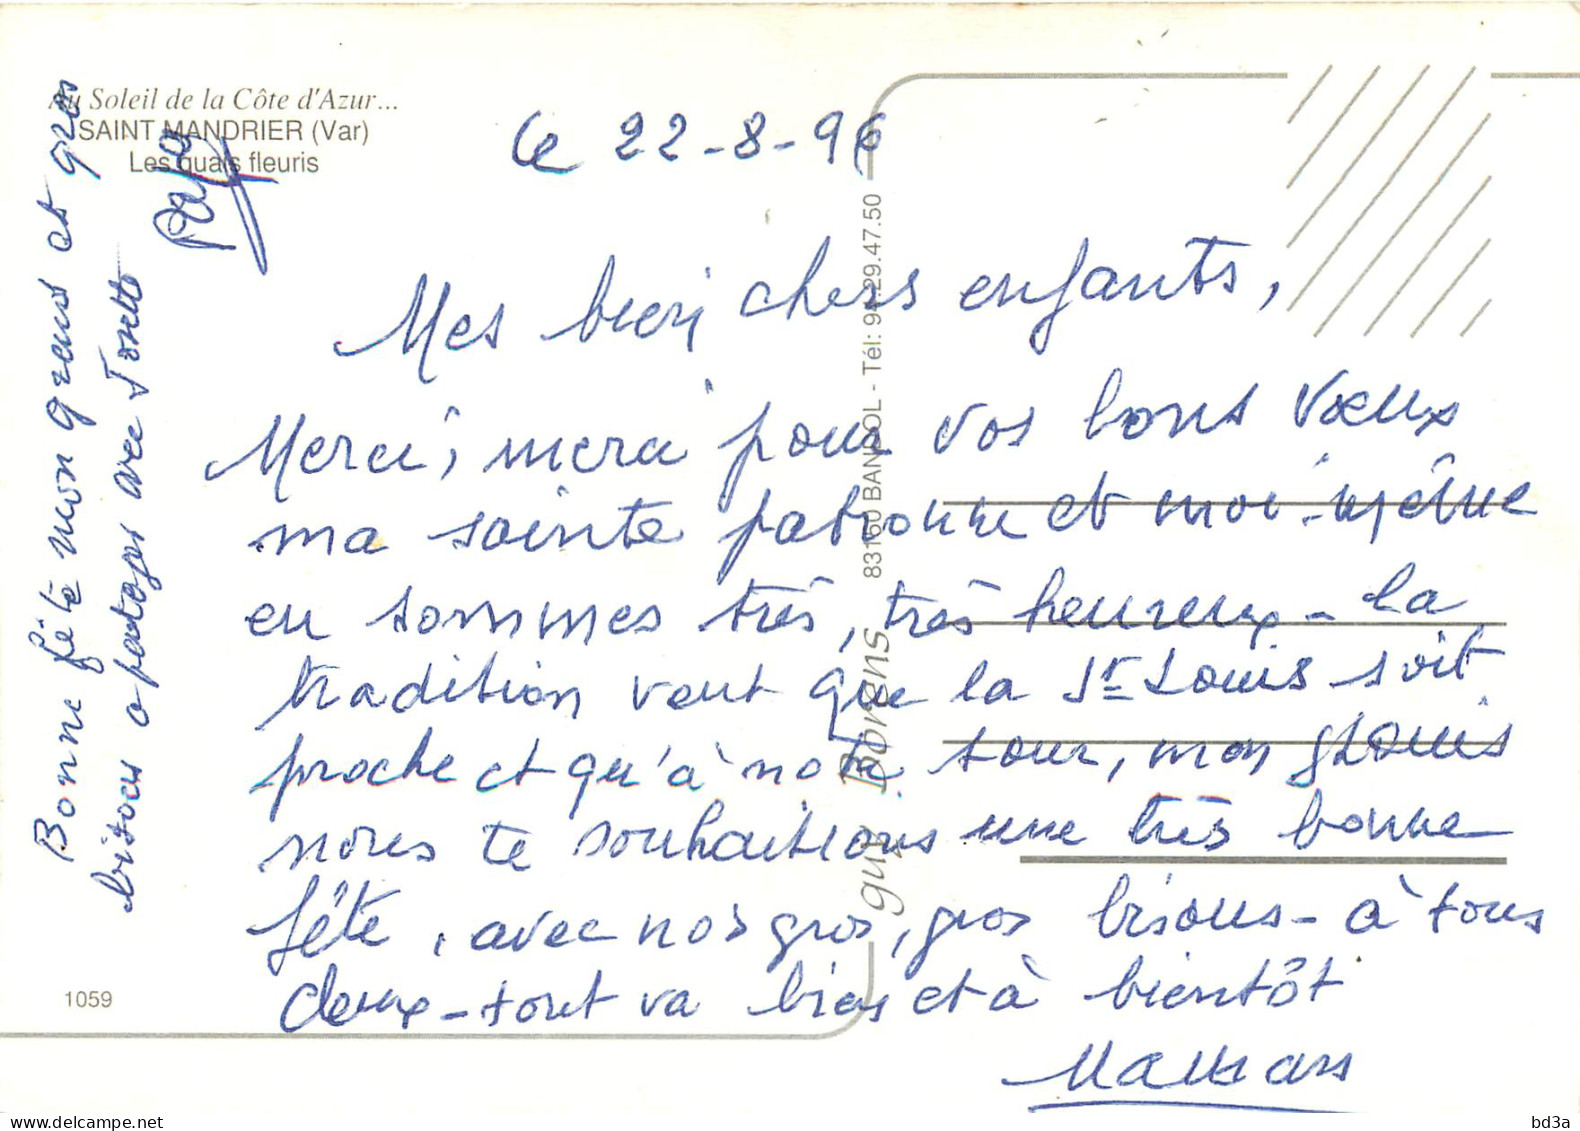 Au Soleil de la Côte d'Azur...
SAINT MANDRIER (Var)
Les quais fleuris
Le 22-8-96
Mes bien chers enfants,
Merci, merci pour vos bons vœux
ma sainte patronne et moi-même
en sommes très, très heureux - la
tradition veut que la St Louis soit
proche et qu'à notre tour, mon Louis
nous te souhaitions une très bonne
fête, avec nos gros, gros bisous - à tous
deux - tout va bien et à bientôt
Maman
Bonne fête mon grand et gros
bisous à partager avec
Papy
guy Dorens
83150 BANDOL - Tél: 94.29.47.50
1059
www.delcampe.net
bd3a